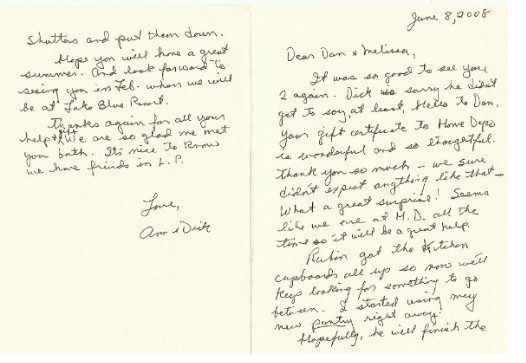 June 8, 2008
Dear Dan & Melissa,
It was so good to see you
2 again. Dick is sorry he didn't
get to say, at least, Hello to Dan.
Your gift certificate to Home Depo
is wonderful and so thoughtful.
Thank you so much - we sure
didn't expect anything like that -
What a great surprise! Seems
like we are at H.D. all the
time so it will be a great help.
Rubin got the Kitchen
cupboards all up so now we'll
keep looking for something to go
between. I started using my
new pantry right away.
Hopefully, he will finish the
shutters and put them down.
Hope you will have a great
summer. And look forward to
seeing you in Feb. when we will
be at Lake Blue Resort.
Thanks again for all your
help. We are so glad we met
you both. It's nice to know
we have friends in L.P.
Love,
Ann & Dick